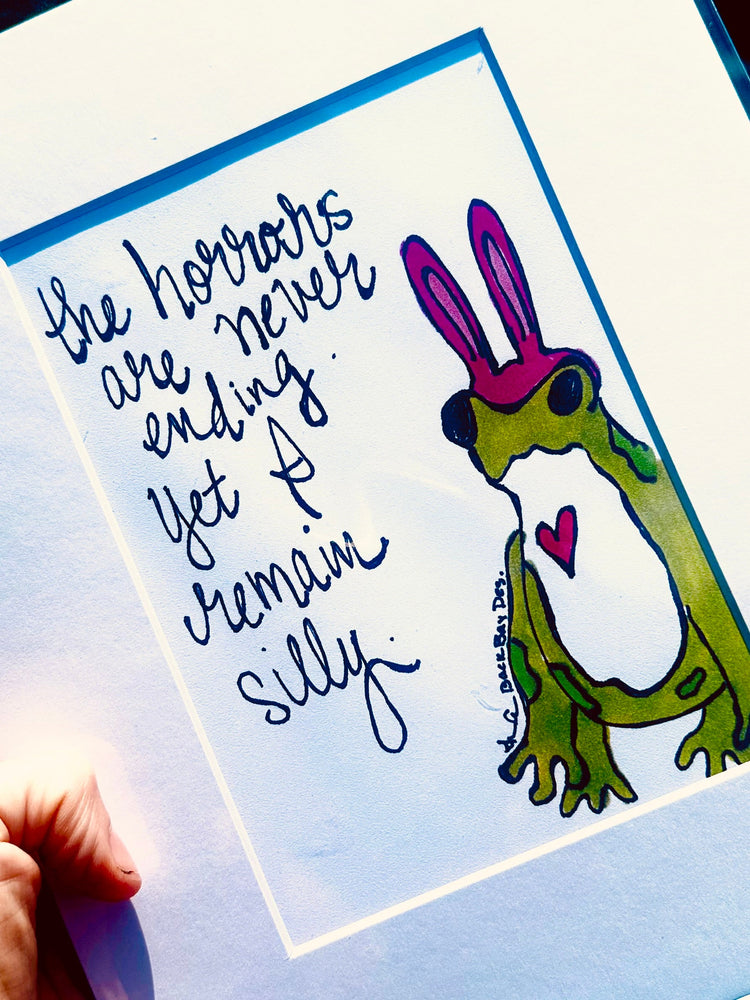 the horrors
are never
ending.
yet I
remain
silly.
BACK BAY DES.